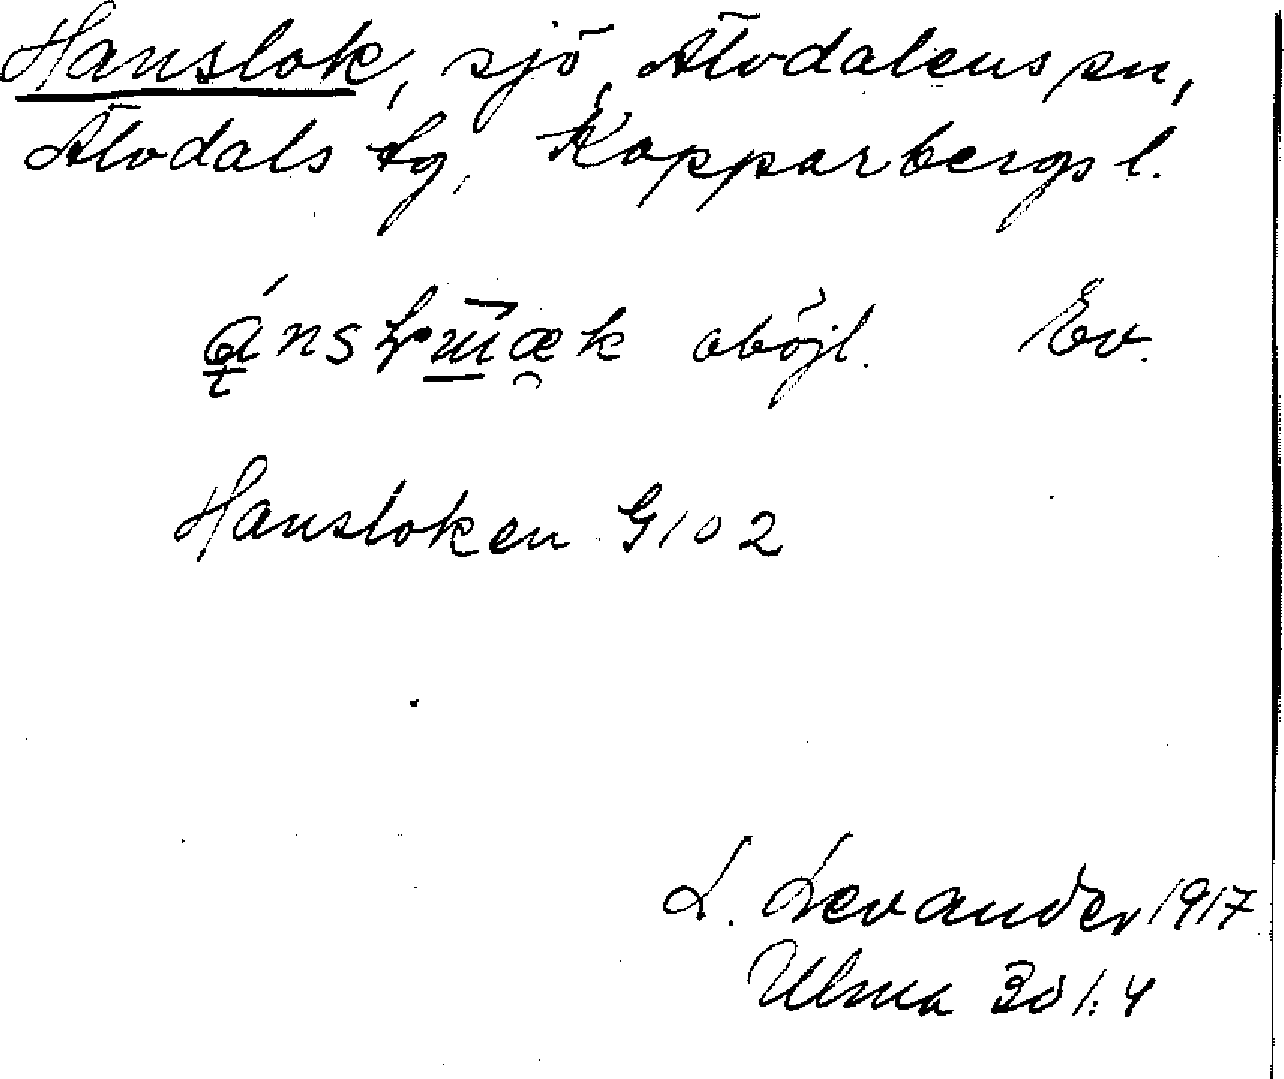 Hanslok, sjö, Älvdalens sn,
Älvdals tg, Kopparbergs l.
oböjl. Ev.
Hansloken G102
L. Levander 1917
Ulma 301:4